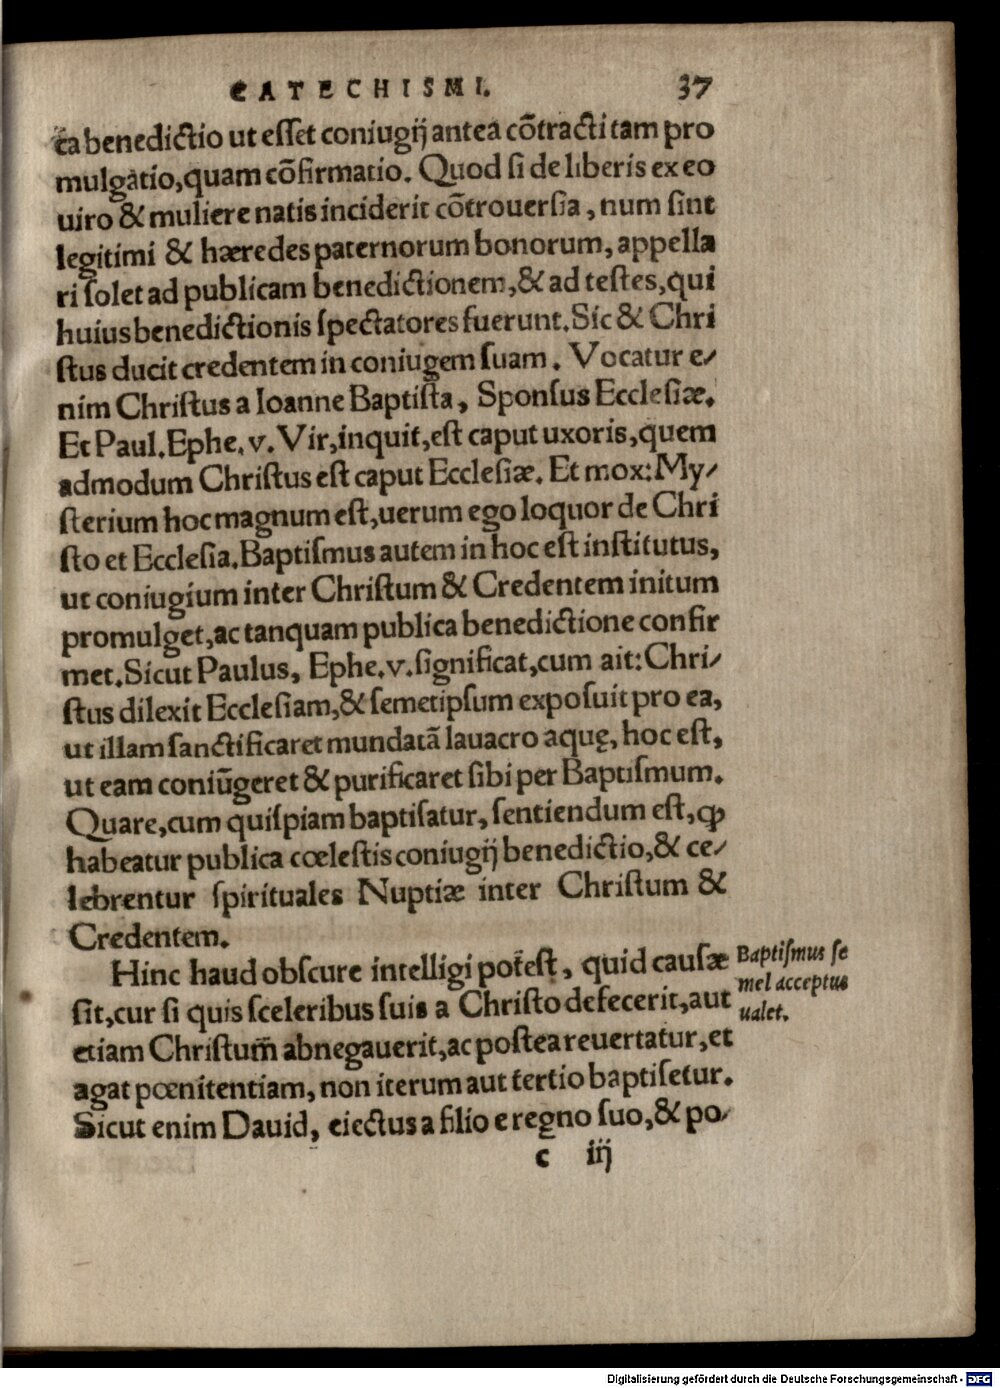 CATECHISMI. 37
ta benedictio ut esset coniugij antea cōtracti tam pro
mulgatio, quam cōfirmatio. Quod si de liberis ex eo
uiro & muliere natis inciderit cōtrouersia, num sint
legitimi & hæredes paternorum bonorum, appella
ri solet ad publicam benedictionem, & ad testes, qui
huius benedictionis spectatores fuerunt. Sic & Chri
stus ducit credentem in coniugem suam. Vocatur e/
nim Christus a Ioanne Baptista, Sponsus Ecclesiæ.
Et Paul. Ephe. v. Vir, inquit, est caput uxoris, quem
admodum Christus est caput Ecclesiæ. Et mox: My/
sterium hoc magnum est, uerum ego loquor de Chri
sto et Ecclesia. Baptismus autem in hoc est institutus,
ut coniugium inter Christum & Credentem initum
promulget, ac tanquam publica benedictione confir
met. Sicut Paulus, Ephe. v. significat, cum ait: Chri/
stus dilexit Ecclesiam, & semetipsum exposuit pro ea,
ut illam sanctificaret mundatā lauacro aquę, hoc est,
ut eam coniūgeret & purificaret sibi per Baptismum.
Quare, cum quispiam baptisatur, sentiendum est, ꝙ
habeatur publica cœlestis coniugij benedictio, & ce/
lebrentur spirituales Nuptiæ inter Christum &
Credentem.
Hinc haud obscure intelligi potest, quid causæ
sit, cur si quis sceleribus suis a Christo defecerit, aut
etiam Christum abnegauerit, ac postea reuertatur, et
agat pœnitentiam, non iterum aut tertio baptisetur.
Sicut enim Dauid, eiectus a filio e regno suo, & po/
Baptismus se
mel acceptus
ualet.
c iij
Digitalisierung gefördert durch die Deutsche Forschungsgemeinschaft - DFG